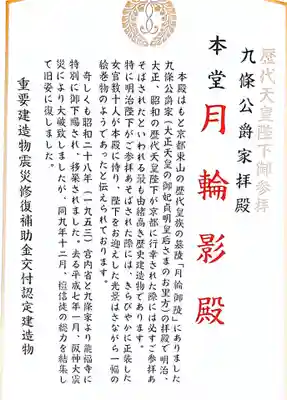 歴代天皇陛下御参拝
九條公爵家拝殿
本堂 月輪影殿
本殿はもと京都東山の歴代皇族の墓陵「月輪御陵」にありました
九條公爵家（大正天皇の御妃貞明皇后さまのお里方）の拝殿で明治、
大正、昭和の歴代天皇陛下が京都に行幸された際には必ずご参拝あ
そばされたといわれる最も由緒高き歴史建造物であります。
特に明治陛下がご参拝あそばされた際には、きらびやかに正装した
女官数十人が本殿に侍り、陛下をお迎えした光景はさながら一幅の
絵巻物のようであったと伝えられております。
奇しくも昭和二十八年（一九五三）宮内省と九條家より能福寺に
特別に御下賜され、移築されました。去る平成七年一月、阪神大震
災により大破致しましたが、同九年十二月、檀信徒の総力を結集し
て旧姿に復しました。
重要建造物震災修復補助金交付認定建造物